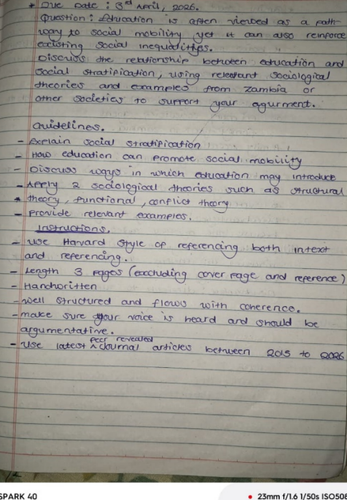 * Due Date : 3rd April, 2026.
Question : Education is often viewed as a path-
way to social mobility yet it can also reinforce
existing social inequalities.
Discuss the relationship between education and
social stratification, using relevant sociological
theories and examples from zambia or
other societies to support your agurment.
Guidelines.
- Explain social stratification
- How education can promote social mobility
- Discuss ways in which education may introduce
- Apply 2 sociological theories such as structural
* theory, functional, conflict theory
- provide relevant examples.
Instructions.
- use Havard style of referencing both intext
and referencing.
- Length 3 pages (excluding cover page and reference)
- Handwritten
- well structured and flows with coherence.
- make sure your voice is heard and should be
argumentative.
- Use latest peer revealed Journal articles between 2015 to 2026
SPARK 40
23mm f/1.6 1/50s ISO508